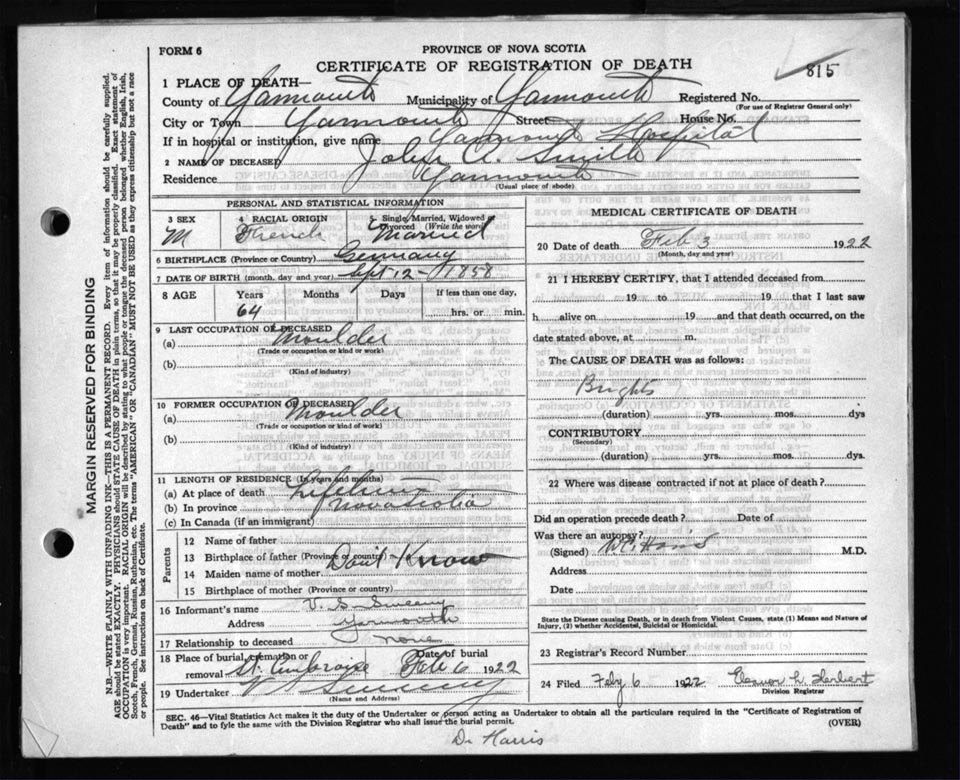 FORM 6
PROVINCE OF NOVA SCOTIA
CERTIFICATE OF REGISTRATION OF DEATH
815
1 PLACE OF DEATH—
County of Yarmouth Municipality of Yarmouth Registered No.
(For use of Registrar General only)
City or Town Yarmouth Street House No.
If in hospital or institution, give name Yarmouth Hospital
2 NAME OF DECEASED John A. Smith
Residence Yarmouth
(Usual place of abode)
PERSONAL AND STATISTICAL INFORMATION
3 SEX 4 RACIAL ORIGIN 5 Single, Married, Widowed
Divorced (Write the word)
M French Married
6 BIRTHPLACE (Province or Country) Germany
7 DATE OF BIRTH (month, day and year) Sept 12 - 1858
8 AGE Years Months Days If less than one day,
64 hrs. or min.
9 LAST OCCUPATION OF DECEASED
(a) Moulder
(Trade or occupation or kind or work)
(b)
(Kind of industry)
10 FORMER OCCUPATION OF DECEASED
(a) Moulder
(Trade or occupation or kind of work)
(b)
(Kind of industry)
11 LENGTH OF RESIDENCE (In years and months)
(a) At place of death Lifetime
(b) In province Nova Scotia
(c) In Canada (if an immigrant)
Parents
12 Name of father
13 Birthplace of father (Province or country) Don't Know
14 Maiden name of mother
15 Birthplace of mother (Province or country)
16 Informant's name V. S. Sweeny
Address Yarmouth
17 Relationship to deceased none
18 Place of burial, cremation or removal St. Ambroise Date of burial Feb 6 1922
19 Undertaker V S Sweeny
(Name and Address)
MEDICAL CERTIFICATE OF DEATH
20 Date of death Feb 3 1922
(Month, day and year)
21 I HEREBY CERTIFY, that I attended deceased from
19 to 19 that I last saw
h alive on 19 and that death occurred, on the
date stated above, at m.
The CAUSE OF DEATH was as follows:
Brights
(duration) yrs. mos. dys
CONTRIBUTORY
(Secondary)
(duration) yrs. mos. dys.
22 Where was disease contracted if not at place of death?
Did an operation precede death? Date of
Was there an autopsy?
(Signed) W C Harris M.D.
Address
Date
State the Disease causing Death, or in death from Violent Causes, state (1) Means and Nature of
Injury, (2) whether Accidental, Suicidal or Homicidal.
23 Registrar's Record Number
24 Filed Feby 6 1922 Eleanor L. Herbert
Division Registrar
SEC. 46—Vital Statistics Act makes it the duty of the Undertaker or person acting as Undertaker to obtain all the particulars required in the "Certificate of Registration of
Death" and to fyle the same with the Division Registrar who shall issue the burial permit.
(OVER)
Dr Harris
MARGIN RESERVED FOR BINDING
N.B—WRITE PLAINLY WITH UNFADING INK—THIS IS A PERMANENT RECORD. Every item of information should be carefully supplied.
AGE should be stated EXACTLY. PHYSICIANS should STATE CAUSE OF DEATH in plain terms, so that it may be properly classified. Exact statement of
OCCUPATION is very important. RACIAL ORIGIN will be described by stating to what people or tongue the deceased person belonged whether English, Irish,
Scotch, French, German, Russian, Ruthenian, etc. The terms "AMERICAN" OR "CANADIAN" MUST NOT BE USED as they express citizenship but not a race
or people. See instructions on back of Certificate.